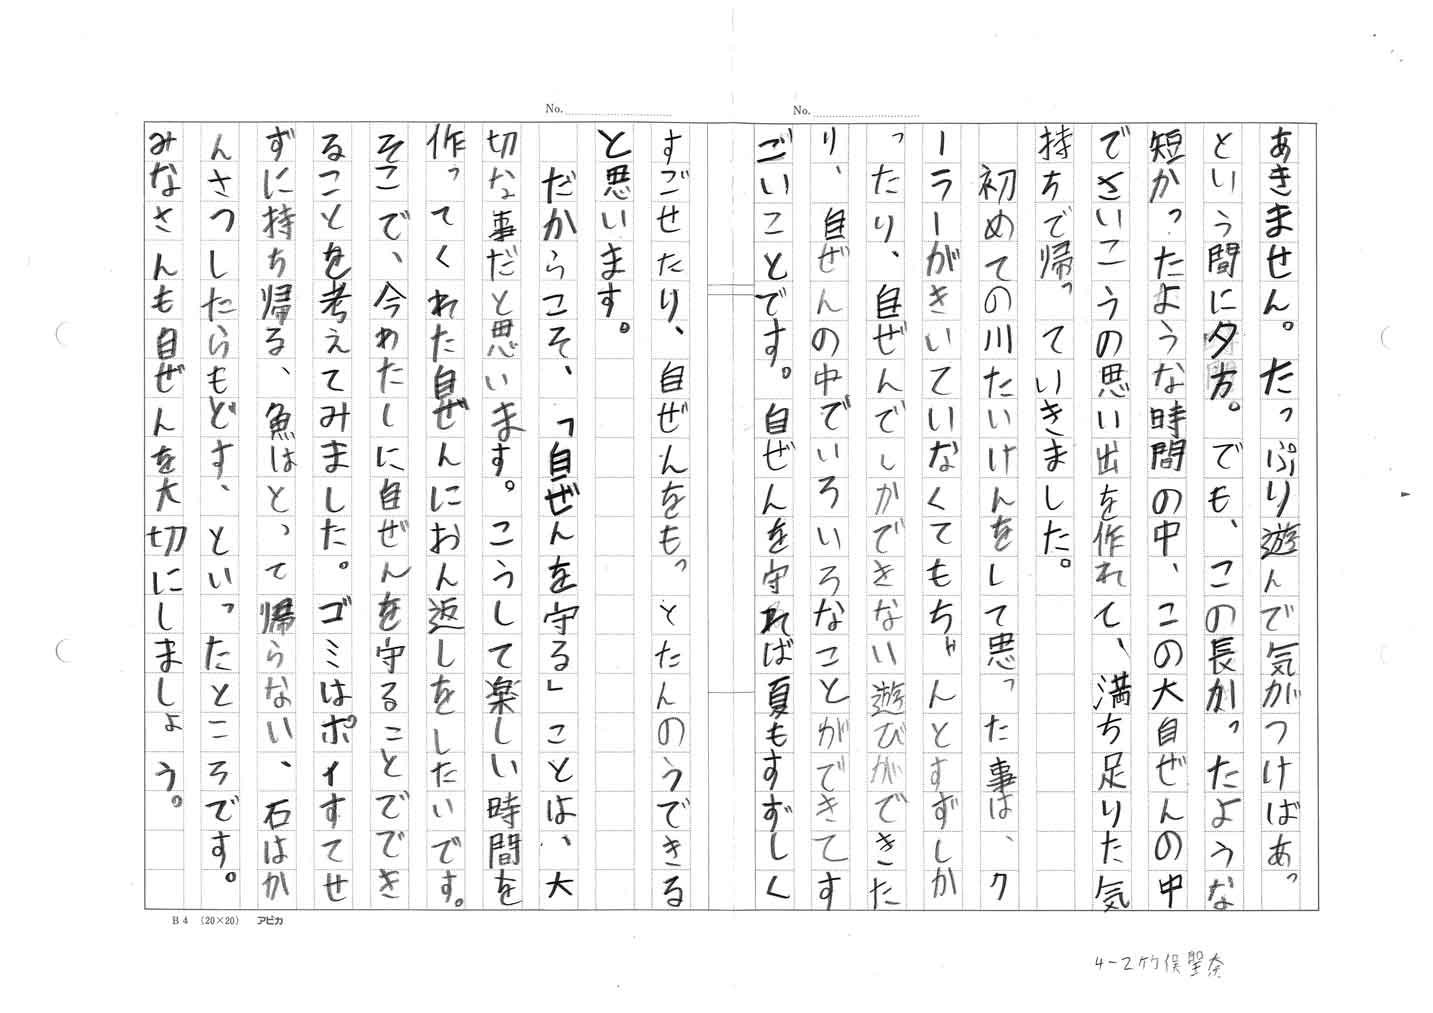 No.
No.
あきません。たっぷり遊んで気がつけばあっ
という間に夕方。でも、この長かったような
短かったような時間の中、この大自ぜんの中
でさいこうの思い出を作れて、満ち足りた気
持ちで帰っていきました。
初めての川たいけんをして思った事は、ク
ーラーがきいていなくてもちゃんとすずしか
ったり、自ぜんでしかできない遊びができた
り、自ぜんの中でいろいろなことができてす
ごいことです。自ぜんを守れば夏もすずしく
すごせたり、自ぜんをもっとたんのうできる
と思います。
だからこそ、「自ぜんを守る」ことは、大
切な事だと思います。こうして楽しい時間を
作ってくれた自ぜんにおん返しをしたいです。
そこで、今わたしに自ぜんを守ることででき
ることを考えてみました。ゴミはポイすてせ
ずに持ち帰る、魚はとって帰らない、石はか
んさつしたらもどす、といったところです。
みなさんも自ぜんを大切にしましょう。
B4 (20×20) アピカ
4-2竹俣聖奈